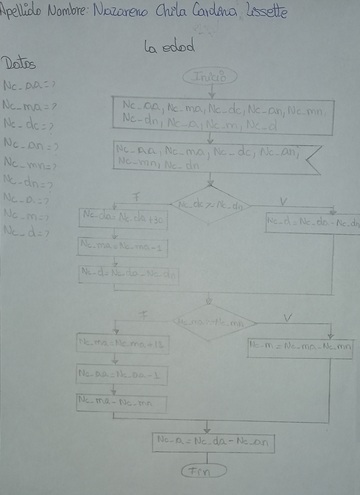 Apellido Nombre: Nazareno Chila Carolina Lissette
La edad
Datos
Nc_aa=?
Nc_ma=?
Nc_dc=?
Nc_an=?
Nc_mn=?
Nc_dn=?
Nc_a=?
Nc_m=?
Nc_d=?
Inicio
Nc_aa, Nc_ma, Nc_dc, Nc_an, Nc_mn,
Nc_dn, Nc_a, Nc_m, Nc_d
Nc_aa, Nc_ma, Nc_dc, Nc_an,
Nc_mn, Nc_dn
F
V
Nc_da=Nc_da+30
Nc_d=Nc_da-Nc_dn
Nc_ma=Nc_ma-1
Nc_d=Nc_da-Nc_dn
F
V
Nc_ma=Nc_ma+12
Nc_m=Nc_ma-Nc_mn
Nc_aa=Nc_aa-1
Nc_ma-Nc_mn
Nc_a=Nc_da-Nc_an
Fin